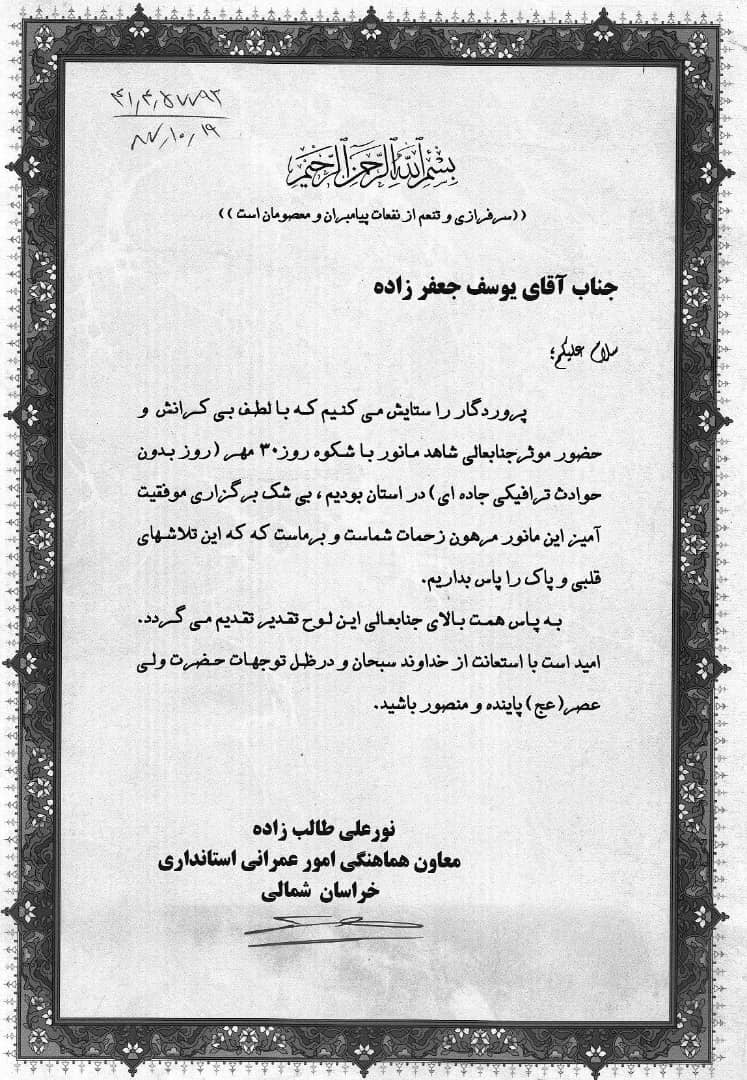 ۴۱٫۴٫۵۷۷۹۳
۸۷٫۱۰٫۱۹
بسم الله الرحمن الرحیم
((سرفرازی و تنعم از نفعات پیامبران و معصومان است))
جناب آقای یوسف جعفر زاده
سلام علیکم؛
پروردگار را ستایش می کنیم که با لطف بی کرانش و
حضور موثر جنابعالی شاهد مانور با شکوه روز ۳۰ مهر (روز بدون
حوادث ترافیکی جاده ای) در استان بودیم، بی شک برگزاری موفقیت
آمیز این مانور مرهون زحمات شماست و برماست که که این تلاشهای
قلبی و پاک را پاس بداریم.
به پاس همت بالای جنابعالی این لوح تقدیر تقدیم می گردد.
امید است با استعانت از خداوند سبحان و درظل توجهات حضرت ولی
عصر(عج) پاینده و منصور باشید.
نورعلی طالب زاده
معاون هماهنگی امور عمرانی استانداری
خراسان شمالی